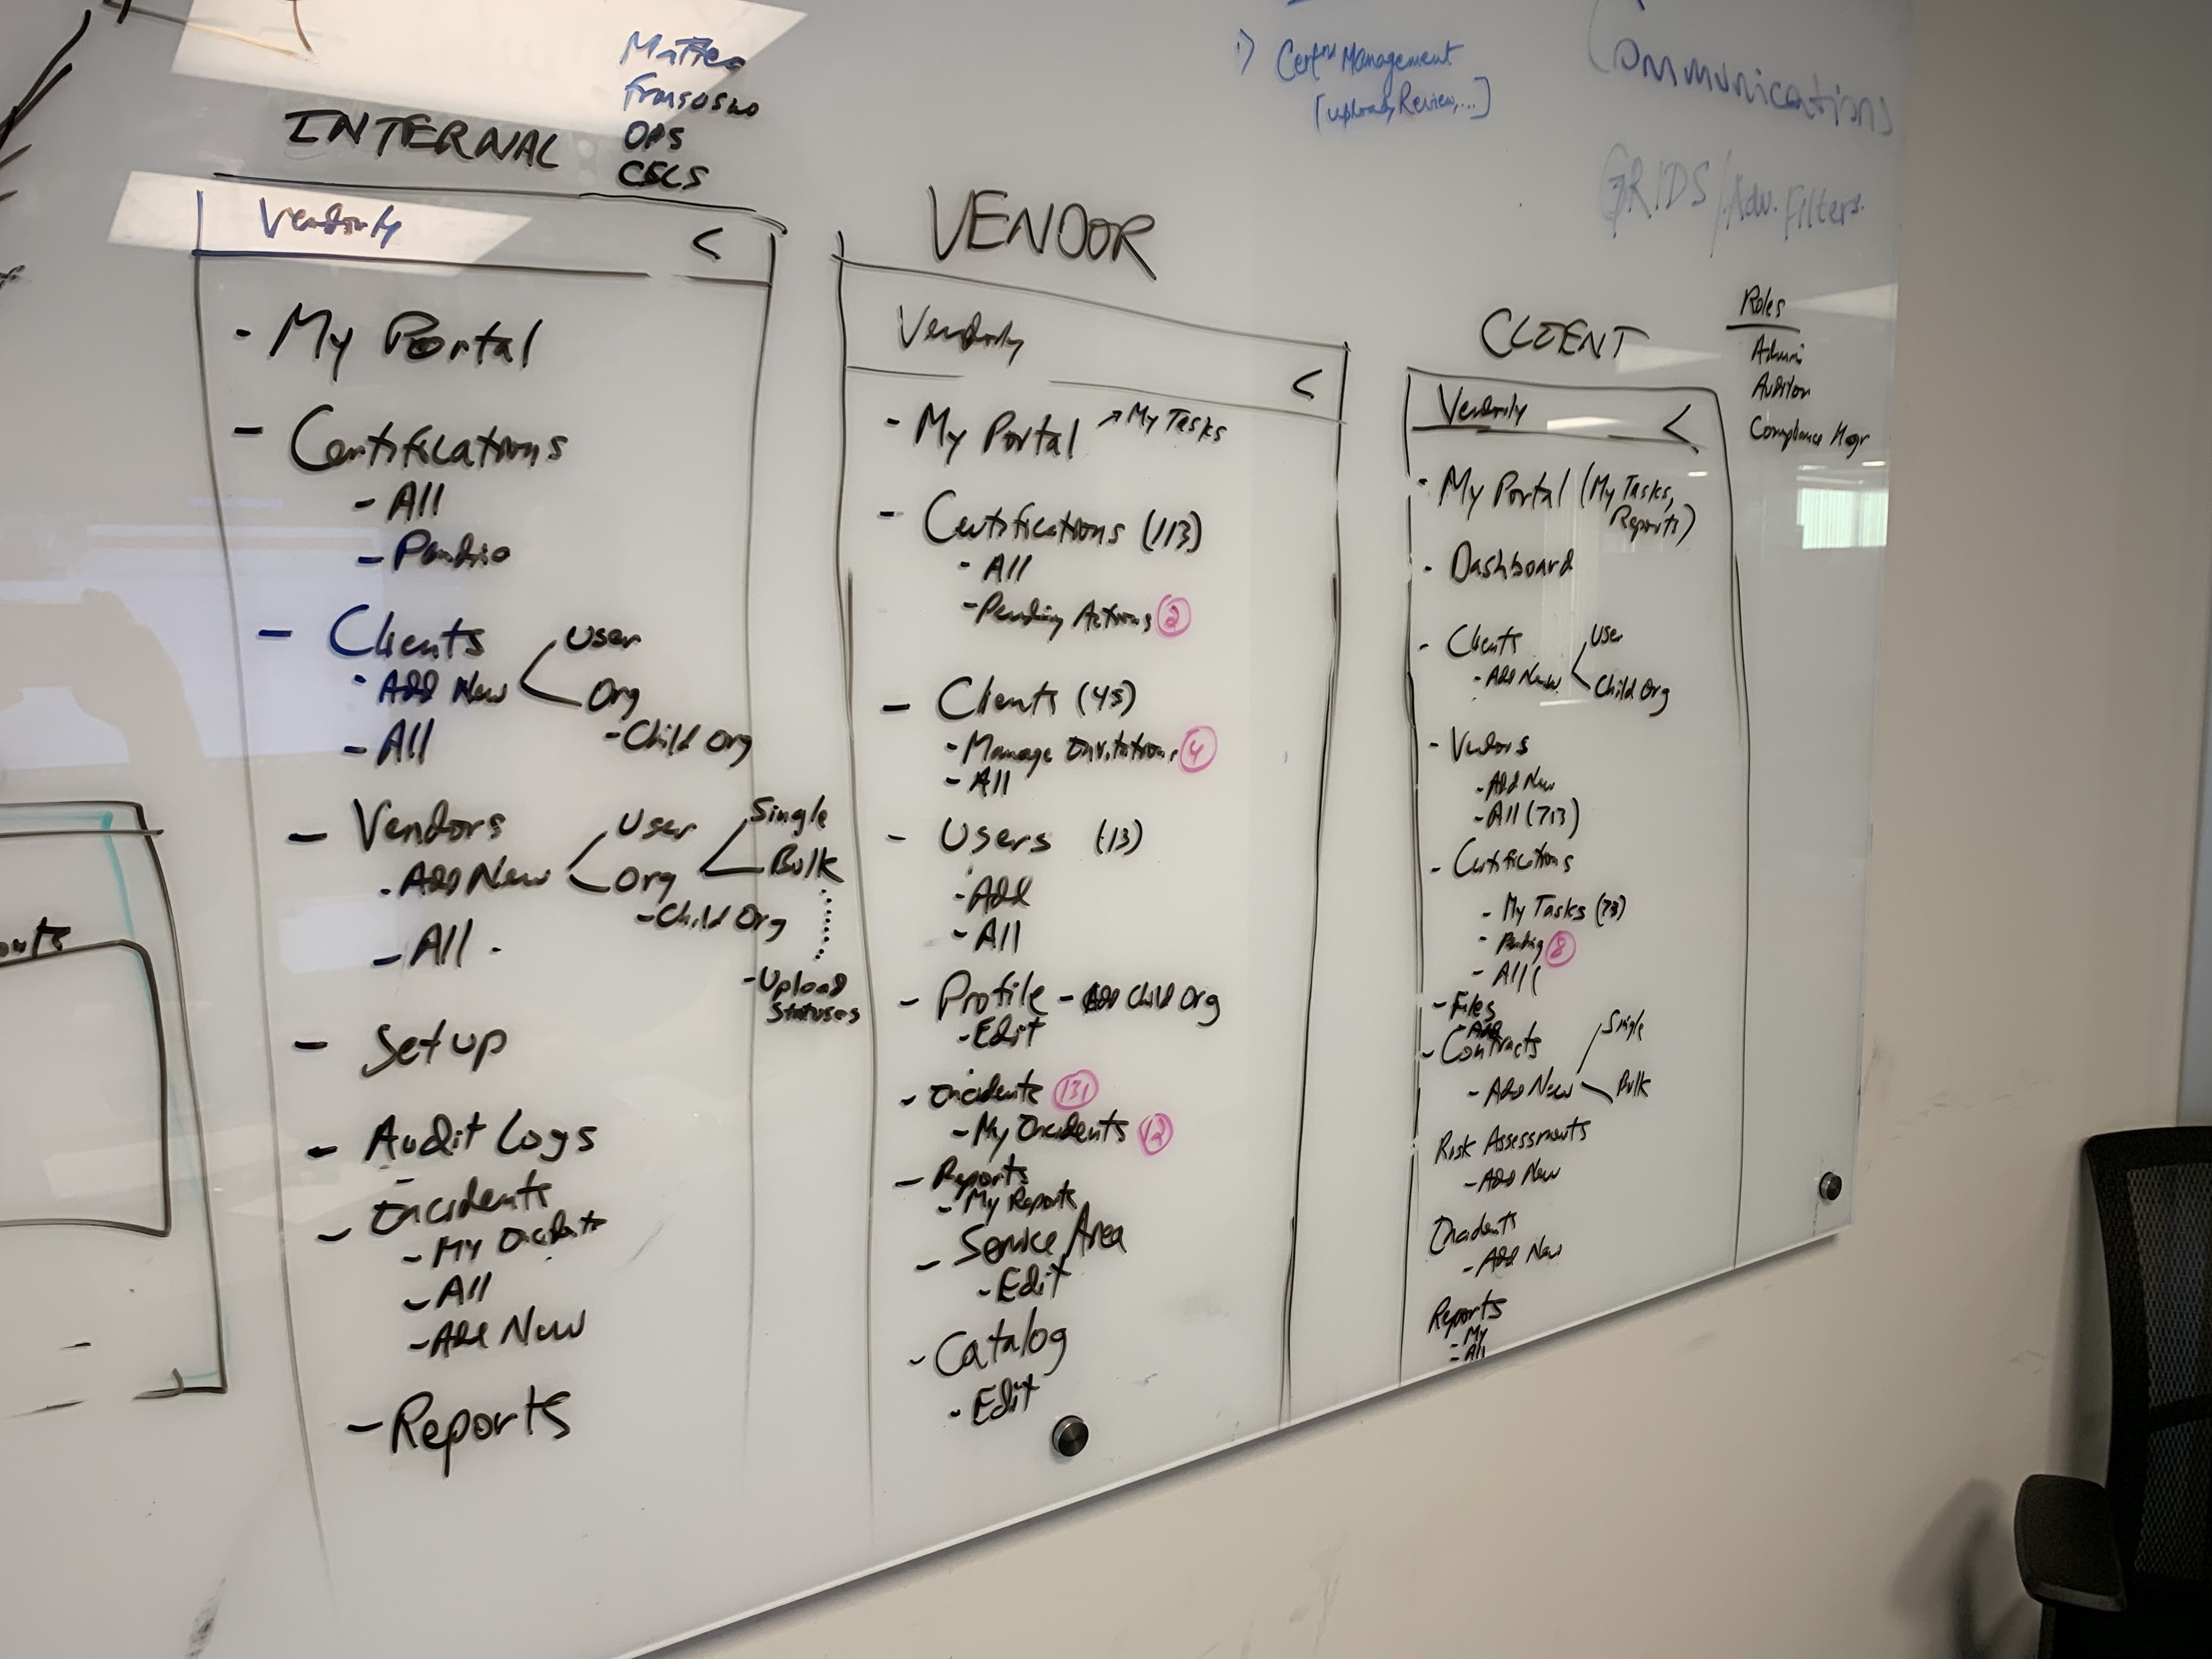 Matteo
OPS
CSCS
INTERNAL
Vendorly <
- My Portal
- Certifications
- All
- Clients
User
- Add New
Org
- Child Org
- All
- Vendors
User
Single
- Add New
Org
Bulk
- Child Org
- All -
- Upload
Statuses
- Setup
- Audit Logs
- Incidents
- My Incidents
- All
- Add New
- Reports
1) Certn Management
[upload, Review, ...]
VENDOR
Vendorly
<
- My Portal → My Tasks
- Certifications (113)
- All
- Pending Actions 2
- Clients (45)
- Manage Invitations 4
- All
- Users (13)
- Add
- All
- Profile - Add Child Org
- Edit
- Incidents 131
- My Incidents 12
- Reports
- My Reports
- Service Area
- Edit
- Catalog
- Edit
Communications
GRIDS/Adv. Filters.
CLIENT
Vendorly <
- My Portal (My Tasks,
Reports)
- Dashboard
- Clients
User
- Add New
Child Org
- Vendors
- Add New
- All (713)
- Certifications
- My Tasks (73)
- Pending 8
- All (
- Files
- Add
- Contracts
Single
- Add New
Bulk
Risk Assessments
- Add New
Incidents
- Add New
Reports
- My
- All
Roles
Admin
Auditor
Compliance Mgr